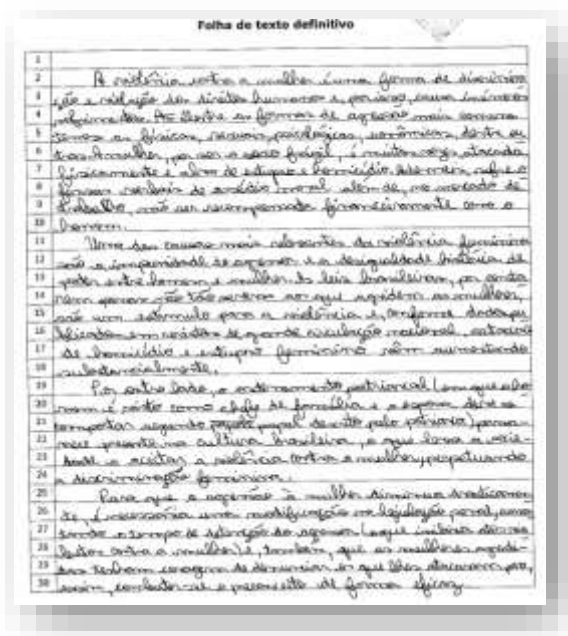 Folha de texto definitivo
1
2 A violência contra a mulher é uma forma de discrimina
3 ção e violação dos direitos humanos e, por isso, causa inúmeros
4 sofrimentos. Dentre as formas de agressão mais comuns
5 temos as físicas, sexuais, psicológicas, econômicas, dentre ou
6 tras. A mulher, por ser o sexo frágil, é muitas vezes atacada
7 fisicamente e alvo de estupro e homicídio. Ademais, sofre
8 de assédio moral, além de, no mercado de
9 trabalho, não ser recompensada financeiramente como o
10 homem.
11 Uma das causas mais relevantes da violência feminina
12 são a impunidade do agressor e a desigualdade histórica de
13 poder entre homem e mulher. As leis brasileiras, por
14 tão severas ao que agridem as mulheres,
15 são um estímulo para a violência e, conforme dados pu
16 blicados em de grande circulação nacional,
17 de homicídio e estupro feminino vêm aumentando
18 substancialmente.
19 Por outro lado, o patriarcal (em que o ho
20 mem é visto como chefe de família e a esposa deve se
21 comportar segundo papel descrito pelo patriarca) perma
22 nece presente na cultura brasileira, o que leva a socie
23 dade a aceitar a violência contra a mulher, perpetuando
24 a discriminação feminina.
25 Para que a agressão à mulher diminua drasticamen
26 te, é necessária uma modificação na legislação penal, aumen
27 tando o tempo de detenção do agressor (o que inibiria atos vio
28 lentos contra a mulher) e, também, que as mulheres agredi
29 das tenham coragem de denunciar os que lhes atacaram para,
30 assim, combater-se o preconceito de forma eficaz.